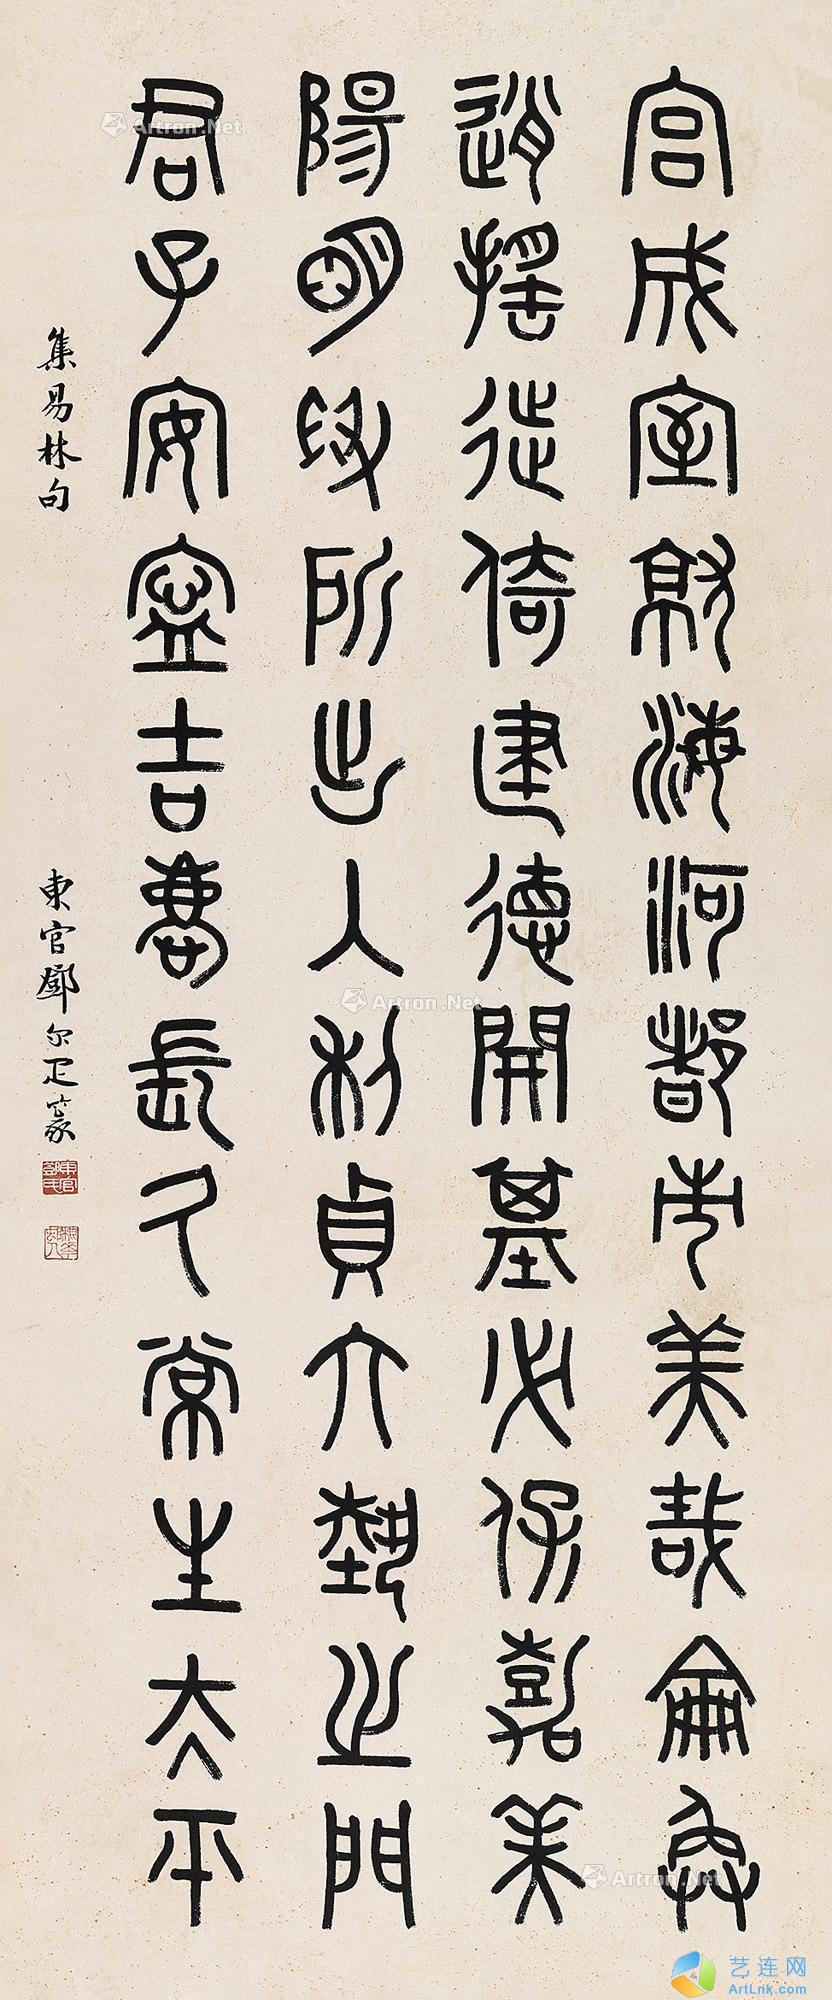 宮成室就海河都市美哉侖奐
逍搖徙倚建德開基必保嘉美
陽明所出入利貞六藝之門
君子安寧吉長久常生大平
集易林句
東官鄧尔疋篆
Artron.Net
Artron.Net
Artron.Net
艺连网
ArtLnk.com